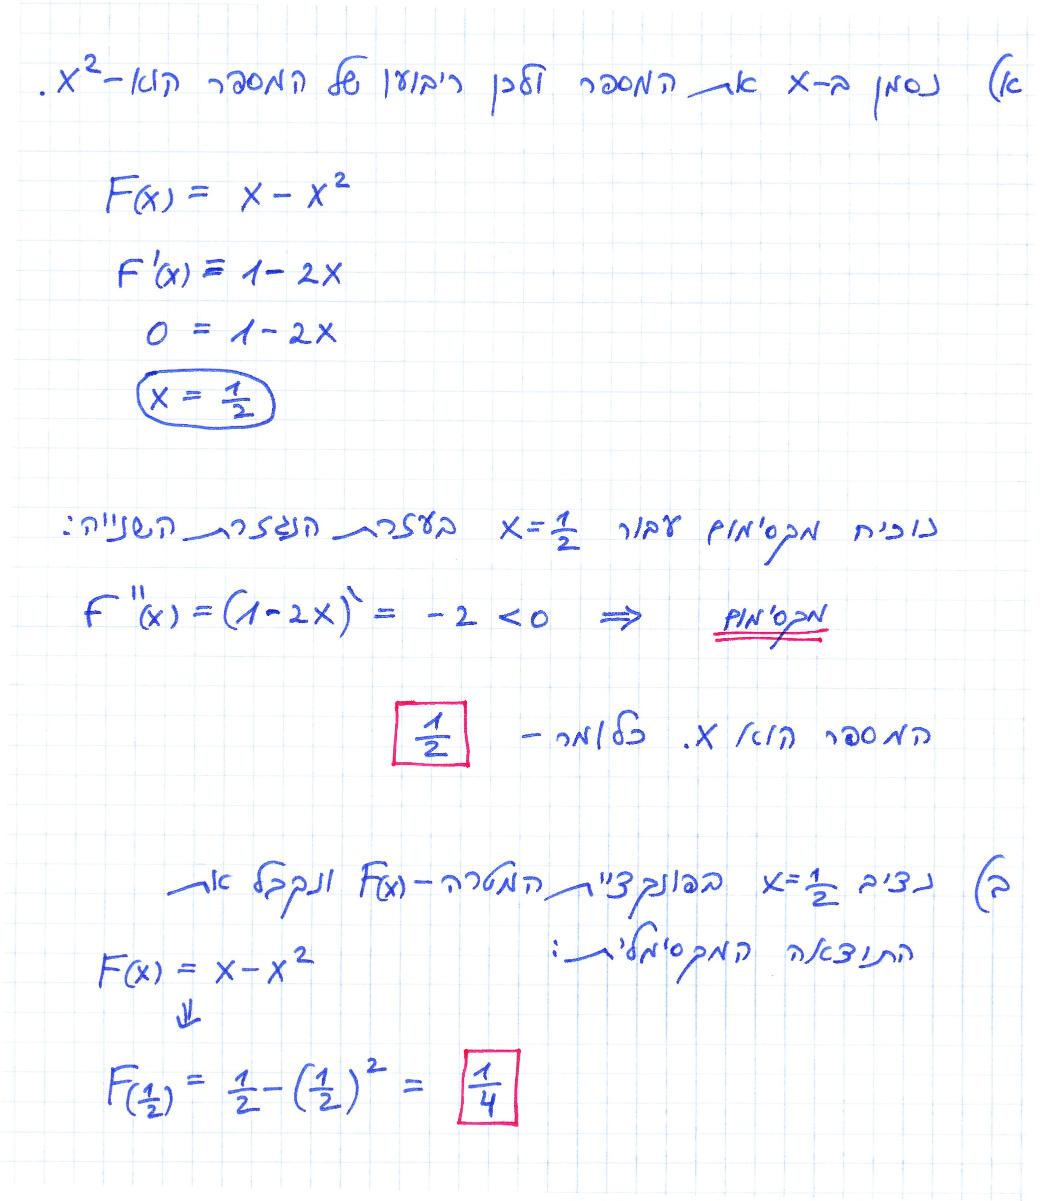 א) נסמן ב-x את המספר ולכן ריבועו של המספר הוא- x².
F(x) = x - x²
F'(x) = 1 - 2x
0 = 1 - 2x
x = 1/2
נוכיח מקסימום עבור x = 1/2 בעזרת הנגזרת השנייה:
F''(x) = (1-2x)' = -2 < 0 ⇒ מקסימום
המספר הוא x. כלומר - 1/2
ב) נציב x = 1/2 בפונקציית המטרה - F(x) ונקבל את
התוצאה המקסימלית:
F(x) = x - x²
⇓
F(1/2) = 1/2 - (1/2)² = 1/4